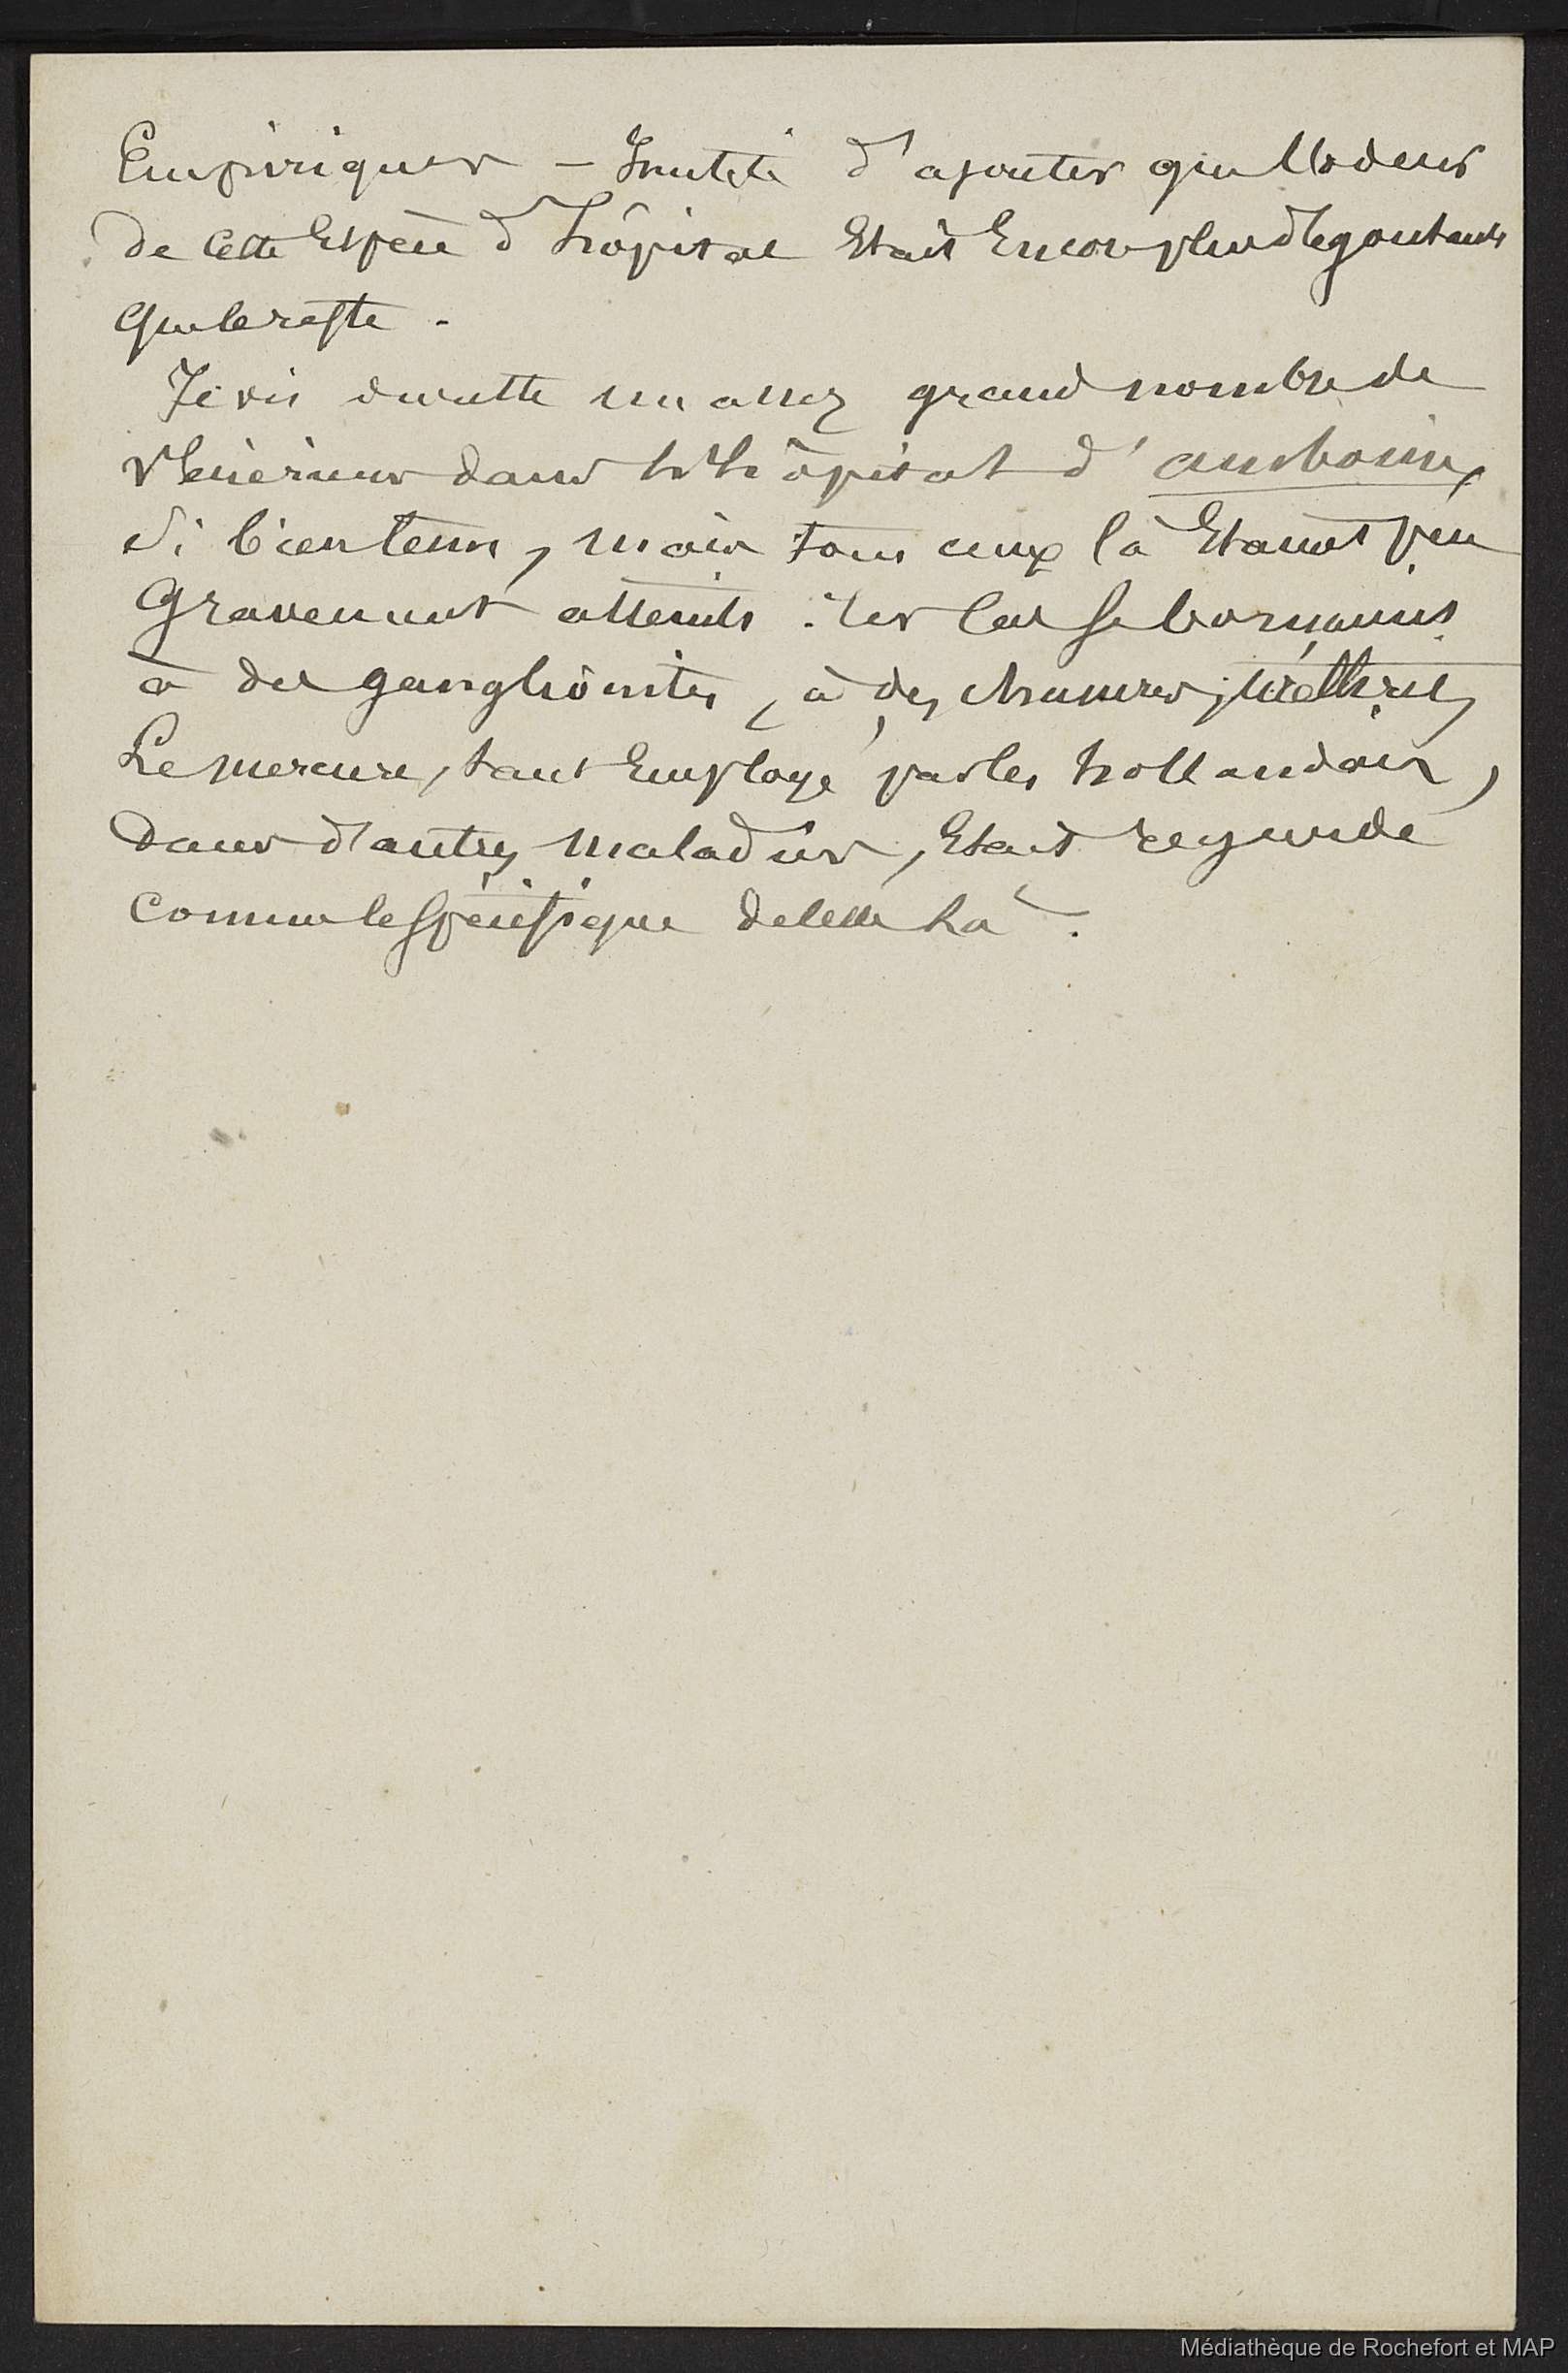 Empiriques – Inutile d'ajouter que l'odeur
de Cette Espèce d'hôpital Etait Encore plus dégoutante
que le reste.
Je vis ensuite un assez grand nombre de
Vénériens dans l'hôpital d'amboine,
si bien tenu, mais tous ceux là Etaient peu
Gravement atteints : les Cas se bornaient
à des ganglionites, à des chancres, uréthrites
Le mercure, tant Employé par les hollandais,
dans d'autres maladies, Etait regardé
comme le spécifique de celle là.
Médiathèque de Rochefort et MAP